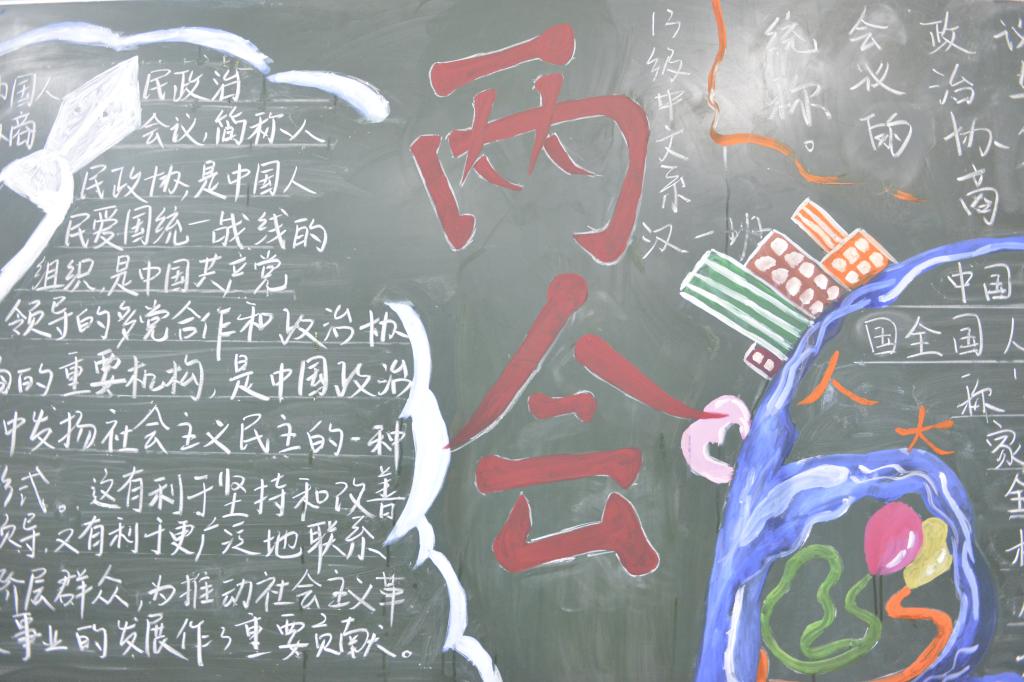 中国人 民政治
商 会议,简称人
民政协,是中国人
民爱国统一战线的
组织,是中国共产党
领导的多党合作和政治协
商的重要机构,是中国政治
中发扬社会主义民主的一种
形式。这有利于坚持和改善
领导,又有利于更广泛地联系
阶层群众,为推动社会主义革
事业的发展作了重要贡献。
两会
13级中文系
汉一班
议
政治协商
会议的
统称。
中国
国全国人
人大
称
家
全